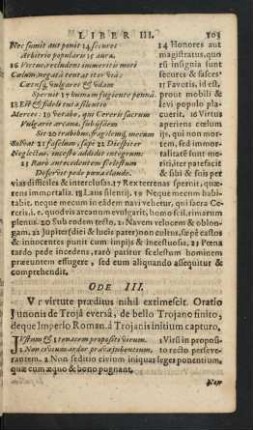 LIBER III. 303
Nec sumit aut ponit 14 secures
Arbitrio popularis 15 auræ.
16 Virtus, recludens immeritis mori
Cælum, negatâ tentat iter viâ:
Cœtusq́; vulgares & udam
Spernit 17 humum fugiente pennâ.
18 Est & fideli tuta silentio
Merces: 19 vetabo, qui Cereris sacrum
Vulgarit arcanæ, sub ijsdem
Sit 20 trabibus, fragilemq́; mecum
Solvat 21 faselum, sæpe 22 Diespiter
Neglectus incesto addidit integrum:
23 Raro antecedentem scelestum
Deseruit pede pœna claudo.
14 Honores aut
magistratus, quo
rũ insignia sunt
secures & fasces.
15 Favoris, id est,
prout mobili &
levi populo pla-
cuerit. 16 Virtus
aperiens cœlum
ijs, qui non mor-
tem, sed immor-
talitatem merẽt,
ità patefacit iter
& sibi & suis per
vias difficiles & interclusas. 17 Rex terrenas spernit, quæ-
rens immortalia. 18 Laus silentij. 19 Neque mecum habi-
tabit. neque mecum in eâdem navi vehetur, qui sacra Ce-
reris, i. e. occulta quadam evulgârit, homo scil. rimarum
plenus. 20 Sub eodem tecto, 21 Navem velocem & oblon-
gam, 22 Jupiter (diei & lucis pater) non cultus, sæpè castos
& innocentes punit cum impijs & incestuosis. 23 Pœna
tardo pede incedens, rarò patitur scelestum hominem
præeuntem effugere, sed eum aliquando assequitur &
comprehendit.
ODE III.
Vir virtute præditus nihil extimescit. Oratio
Junonis de Trojâ eversâ, de bello Trojano finito,
deque Imperio Roman. â Trojanis initium capturo,
Justum & tenacem propositi virum
2 Non civium ardor prava jubentium,
1 Virũ in proposi-
to recto perseve-
rantem. 2 Non seditio civium iniquas leges ponentium,
quæ cum æquo & bono pugnant.
Non